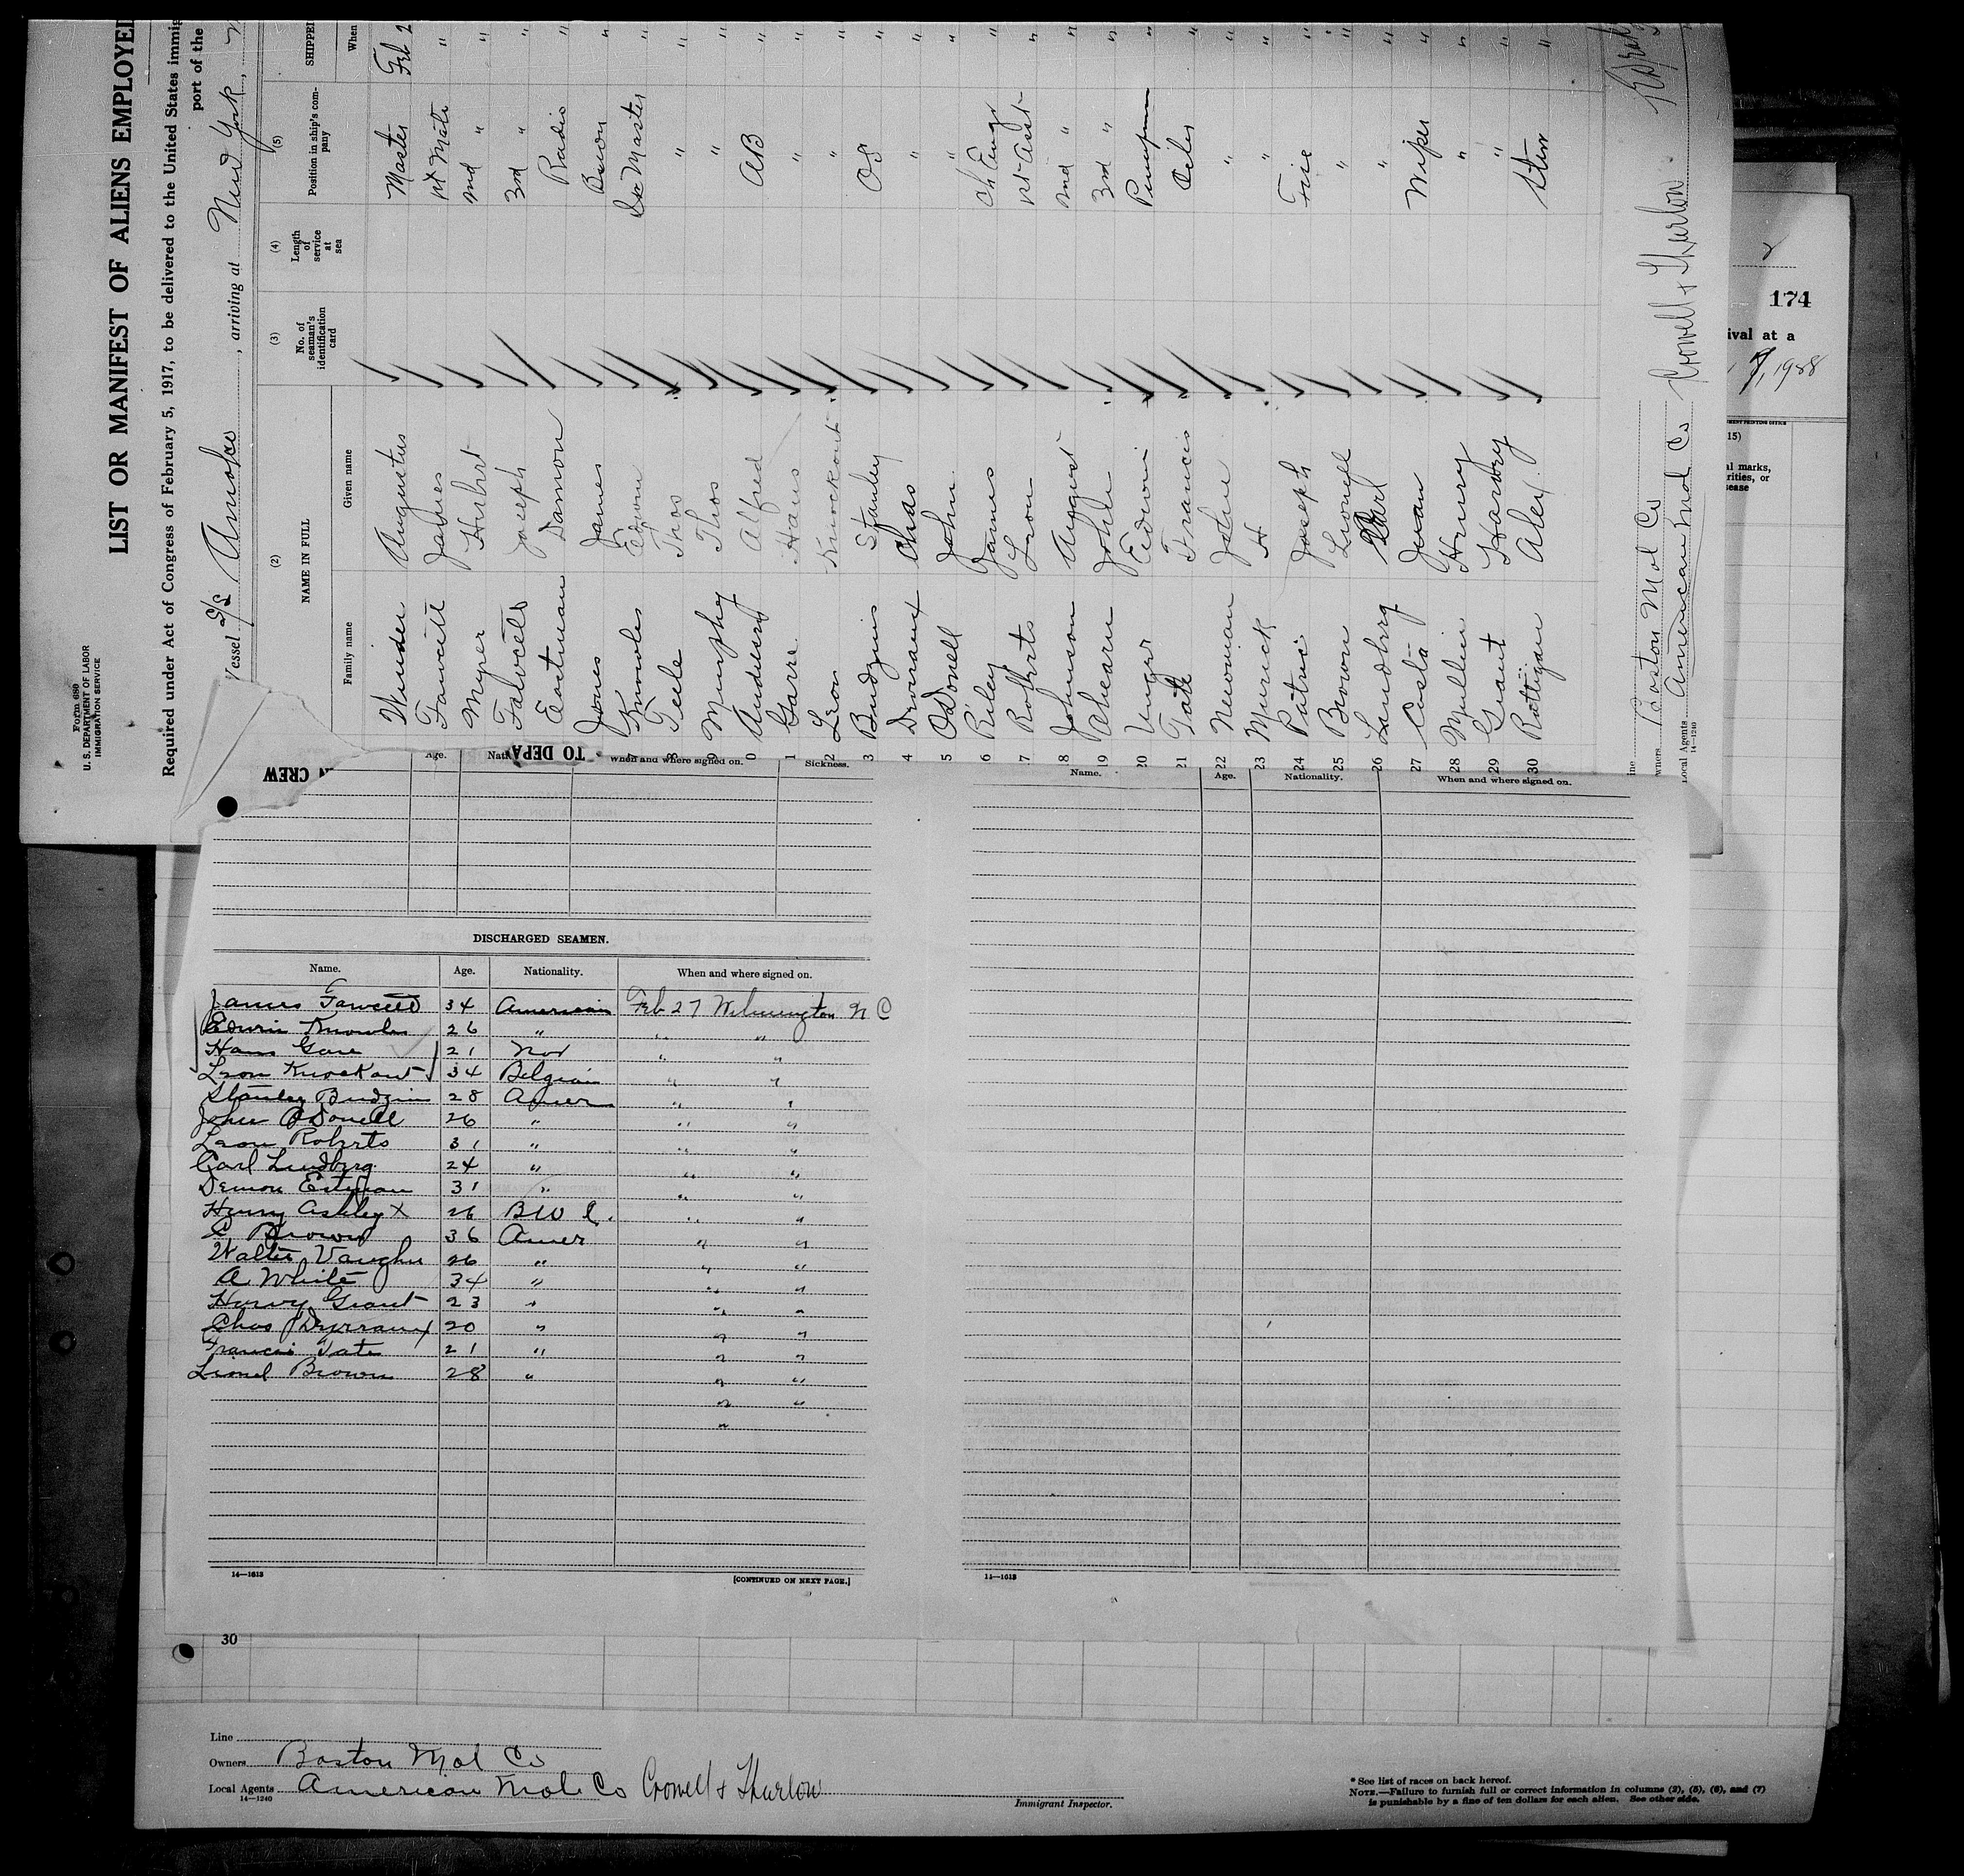 Form 680
U. S. DEPARTMENT OF LABOR
IMMIGRATION SERVICE
LIST OR MANIFEST OF ALIENS EMPLOYED
Required under Act of Congress of February 5, 1917, to be delivered to the United States immig
port of the
Vessel S/S , arriving at New York,
(2) (3) (4) (5)
NAME IN FULL No. of seaman's identification card Length of service at sea Position in ship's company SHIPPED
Family name Given name When
Winder Augustus Master Feb 2
Fawcett James 1st Mate "
Myer Hubert 2nd " "
Falvcett Joseph 3rd " "
Eastman Damon Radio "
Jones James Bosun "
7 Knowles Edwin Qr Master "
8 Teele Thos " "
9 Murphy Thos " "
0 Alfred AB "
1 Garre Hans " "
2 Leon Knockaut " "
3 Budzins Stanley OS "
4 Chas " "
5 O'Donell John " "
6 Riley James Ch Engr "
7 Roberts Leon 1st Asst "
18 Johnson August 2nd " "
19 Ahearn John 3rd " "
20 Unger Edwin Pumpman "
21 Tate Francis Oiler "
22 Newman John " "
23 Murick H " "
24 Patric Joseph Fire "
25 Brown Lionell " "
26 Landbrg Carl " "
27 Costa Juan Wiper "
28 Mullin Henry " "
29 Grant Harvey " "
30 Rattigan Alex Stew "
ine
wners Boston Mol Co
Local Agents American Mol Co Crowell & Thurlow
14—1240
174
ival at a
7, 1928
15)
al marks,
rities, or
sease
N CREW
TO DEPA
Age. Nat When and where signed on. Sickness.
Name. Age. Nationality. When and where signed on.
DISCHARGED SEAMEN.
Name. Age. Nationality. When and where signed on.
James Fawcett 34 American Feb 27 Wilmington N C
Edwin Knowles 26 " " "
Hans Gare 21 Nor " "
Leon Knockaut 34 Belgian " "
Stanley Budzin 28 Amer " "
John O'Donell 26 " " "
Leon Roberts 31 " " "
Carl Lindbrg 24 " " "
Demon Estman 31 " " "
Henry Ashley X 26 B W I. " "
C Brown 36 Amer " "
Walter Vaughn 26 " " "
A White 34 " " "
Harvy Grant 23 " " "
Chas 20 " " "
Francis Tate 21 " " "
Lionel Brown 28 " " "
" "
"
14—1613 [CONTINUED ON NEXT PAGE.] 11—1613
30
Line
Owners Boston Mol Co
Local Agents American Mol Co Crowell & Thurlow
14—1240
Immigrant Inspector.
* See list of races on back hereof.
NOTE.—Failure to furnish full or correct information in columns (2), (5), (6), and (7)
is punishable by a fine of ten dollars for each alien. See other side.